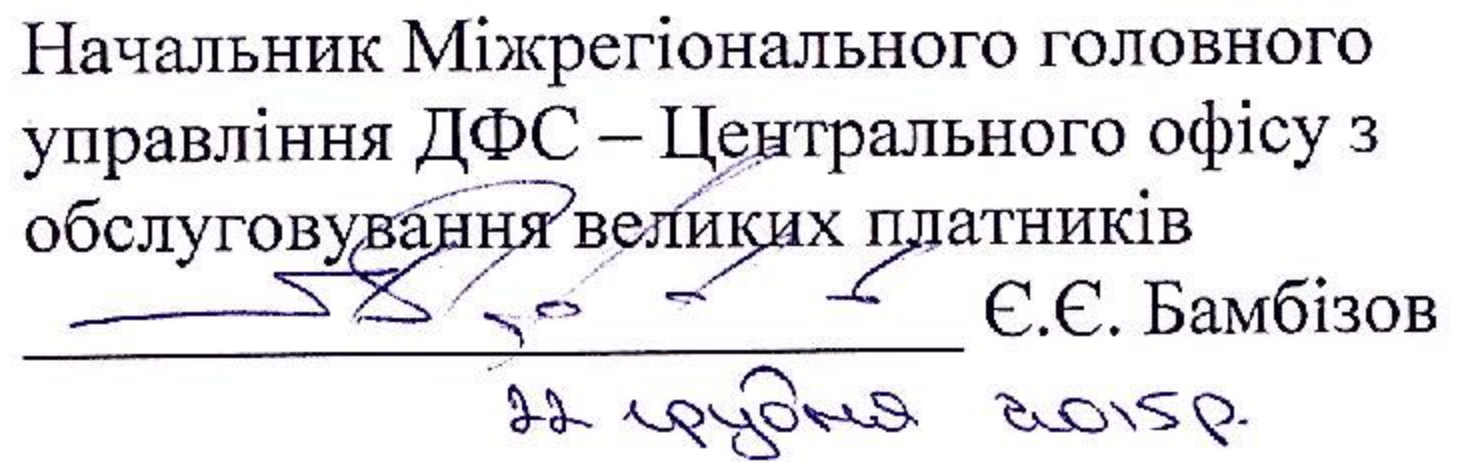 Начальник Міжрегіонального головного
управління ДФС – Центрального офісу з
обслуговування великих платників
Є.Є. Бамбізов
22 грудня 2015р.